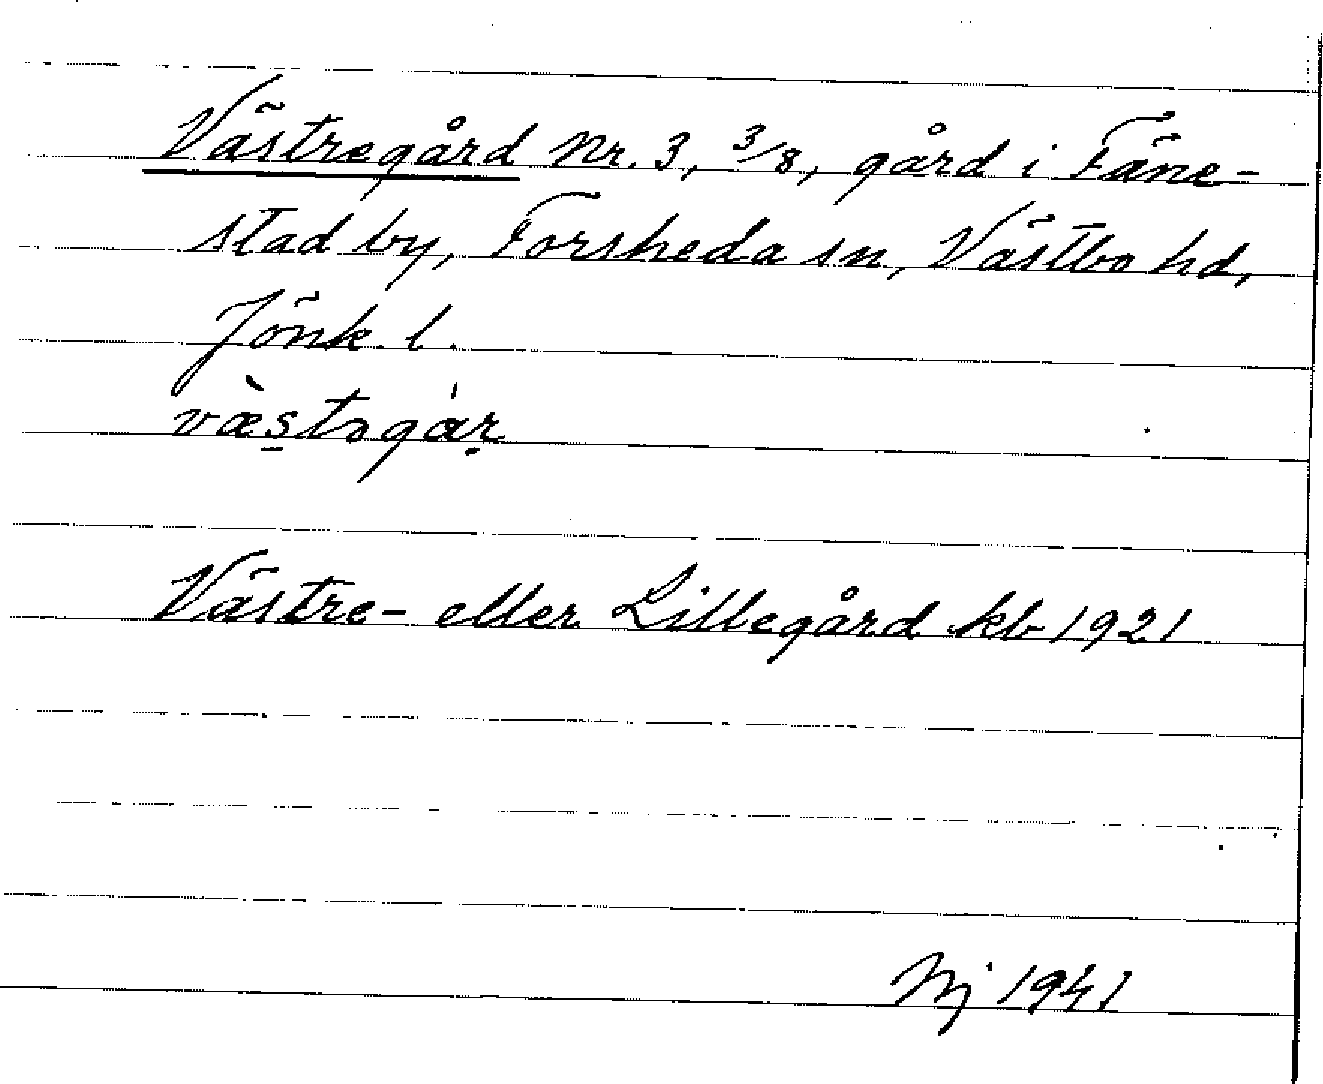 Västregård Nr. 3, 3/8, gård i Fäne-
stad by, Forsheda sn, Västbo hd,
Jönk. l.
væ̀stɔgår
Västre- eller Lillegård kb 1921
Nj 1941